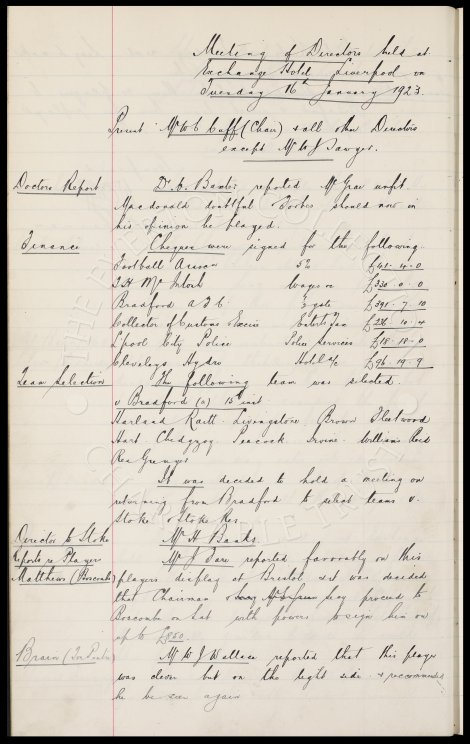 Meeting of Directors held at
Exchange Hotel Liverpool on
Tuesday 16th January 1923.
Present Mr W C Cuff (Chair) & all other Directors
except Mr W J Sawyer.
Doctors Report Dr. C. Baxter reported McGrae unfit.
Macdonald doubtful Forbes should now in
his opinion be played.
Finance Cheques were signed for the following.
Football Assocn 5% £41. 4. 0
T H McIntosh Wages &c £330. 0. 0
Bradford A F C. ½ gate £391. 7. 10
Collector of Customs Excise Entert Tax £226. 10. 4
Lpool City Police Police Services £18. 18. 0
Cleveleys Hydro Hotel a/c £96. 19. 9
Team Selection The following team was selected.
v. Bradford (a) inst
Harland Raitt Livingstone Brown Fleetwood
Hart Chedgzoy Peacock Irvine Williams Reid
Res Grenyer
It was decided to hold a meeting on
returning from Bradford to select teams v.
Stoke & Stoke Res.
Director to Stoke Mr H Banks.
Reports re Player Mr J Fare reported favorably on this
Matthews (Boscombe) players display at Bristol & it was decided
that Chairman & Secy proceed to
Boscombe on Sat with powers to sign him on
up to £850.
Brain (Ton Pentre) Mr W J Wallace reported that this player
was clever but on the light side & recommended
he be seen again